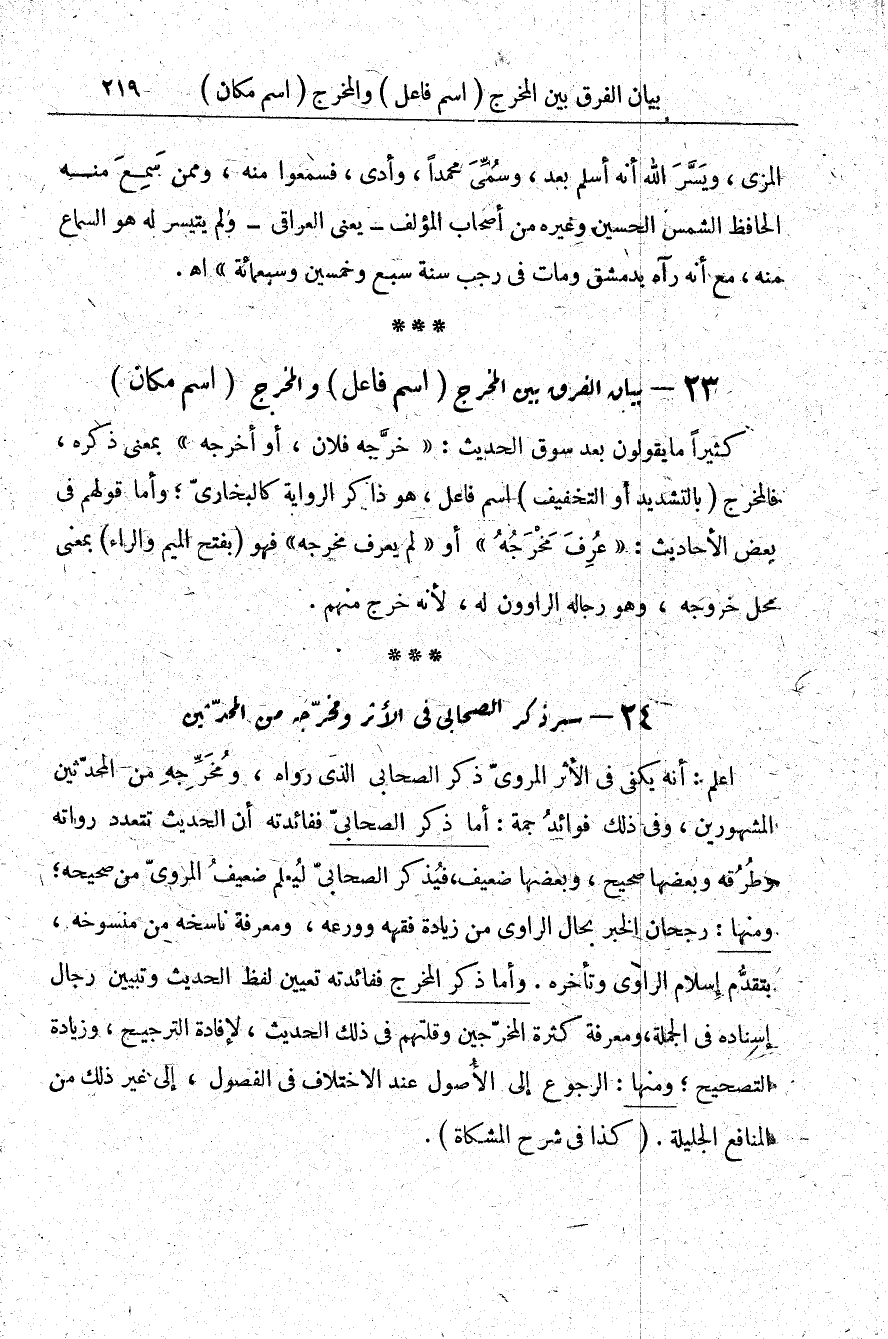 بيان الفرق بين المخرج ( اسم فاعل ) والمخرج ( اسم مكان ) ٢١٩
المزى ، ويَسَّرَ الله أنه أسلم بعد ، وسُمِّىَ محمداً ، وأدى ، فسمعوا منه ، وممن سَمِعَ منه
الحافظ الشمس الحسين وغيره من أصحاب المؤلف ــ يعنى العراقى ــ ولم يتيسر له هو السماع
منه ، مع أنه رآه بدمشق ومات فى رجب سنة سبع وخمسين وسبعمائة » اه .
***
٢٣ — بيان الفرق بين المخرج ( اسم فاعل ) والمخرج ( اسم مكان )
كثيراً ما يقولون بعد سوق الحديث : « خرَّجه فلان ، أو أخرجه » بمعنى ذكره ،
فالمخرج ( بالتشديد أو التخفيف ) اسم فاعل ، هو ذاكر الرواية كالبخارىّ ؛ وأما قولهم فى
بعض الأحاديث : « عُرِفَ مَخْرَجُهُ » أو « لم يعرف مخرجه » فهو ( بفتح الميم والراء ) بمعنى
محل خروجه ، وهو رجاله الراوون له ، لأنه خرج منهم .
***
٢٤ — سر ذكر الصحابى فى الأثر ومخرّجه من المحدّثين
اعلم : أنه يكفى فى الأثر المروىّ ذكر الصحابى الذى رواه ، ومُخَرِّجِه من المحدّثين
المشهورين ، وفى ذلك فوائدُ جمة : أما ذكر الصحابىّ ففائدته أن الحديث تتعدد رواته
وطُرُقه وبعضها صحيح ، وبعضها ضعيف ، فيُذكر الصحابىّ ليُعلم ضعيفُ المروىّ من صحيحه ؛
ومنها : رجحان الخبر بحال الراوى من زيادة فقهه وورعه ، ومعرفة ناسخه من منسوخه ،
بتقدُّم إسلام الراوى وتأخره . وأما ذكر المخرج ففائدته تعيين لفظ الحديث وتبيين رجال
إسناده فى الجملة ، ومعرفة كثرة المخرّجين وقلتهم فى ذلك الحديث ، لإفادة الترجيح ، وزيادة
التصحيح ؛ ومنها : الرجوع إلى الأصول عند الاختلاف فى الفصول ، إلى غير ذلك من
المنافع الجليلة . ( كذا فى شرح المشكاة ) .